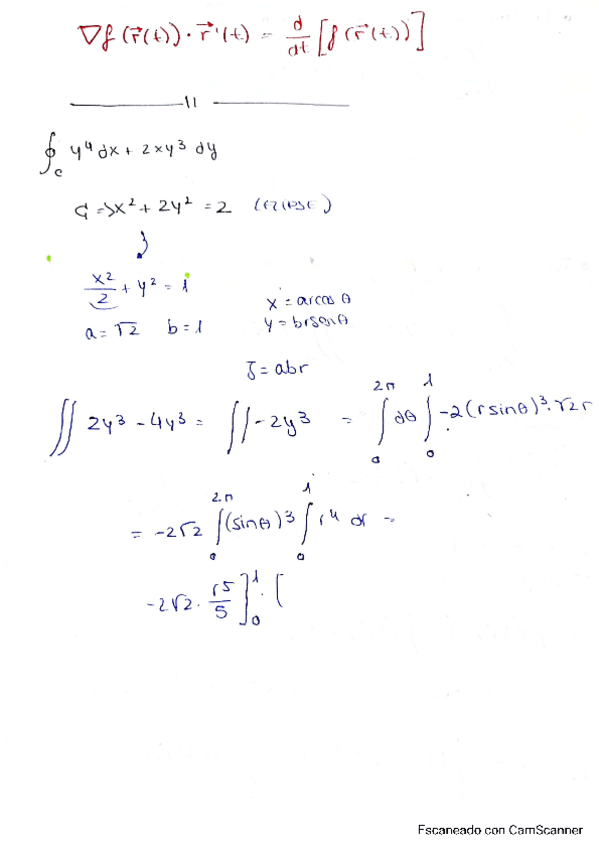 ∇f(r⃗(t))·r⃗'(t) = d/dt [f(r⃗(t))]
11
∮_C y⁴dx + 2xy³ dy
C => x² + 2y² = 2 (ELIPSE)
x²/2 + y² = 1
a = √2 b = 1
x = arcos θ
y = brsenθ
J = abr
∬ 2y³ - 4y³ = ∬ -2y³ = ∫₀^2π dθ ∫₀^1 -2(r sinθ)³·√2 r
= -2√2 ∫₀^2π (sinθ)³ ∫₀^1 r⁴ dr =
-2√2 · r⁵/5 ]₀^1 · [
Escaneado con CamScanner